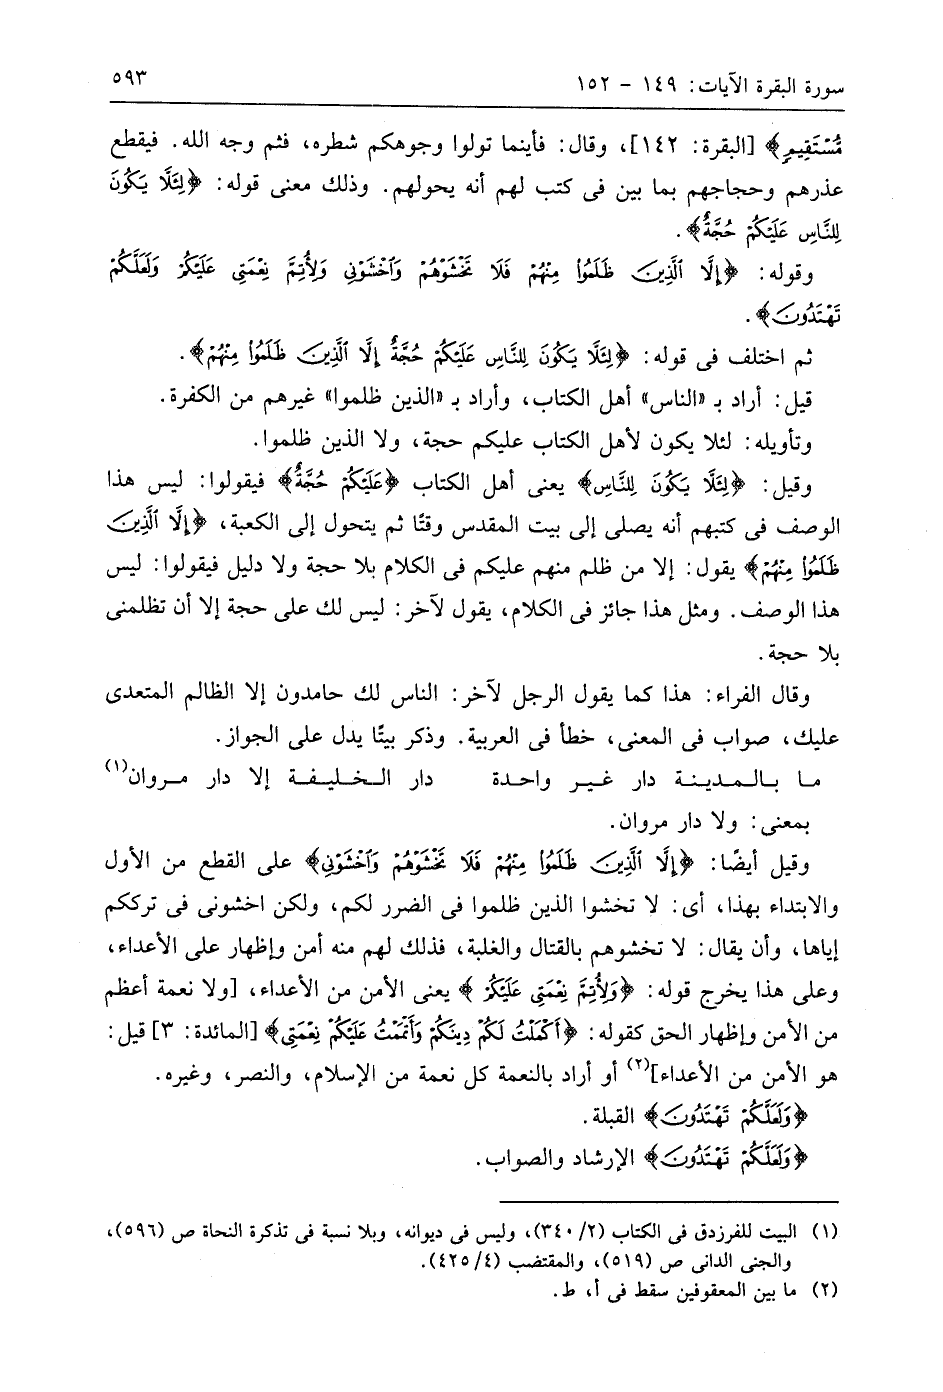 سورة البقرة الآيات: ١٤٩ - ١٥٢ ٥٩٣
مُّسْتَقِيمٍ﴾ [البقرة: ١٤٢]، وقال: فأينما تولوا وجوهكم شطره، فثم وجه الله. فيقطع
عذرهم وحجاجهم بما بين فى كتب لهم أنه يحولهم. وذلك معنى قوله: ﴿لِئَلَّا يَكُونَ
لِلنَّاسِ عَلَيْكُمْ حُجَّةٌ﴾.
وقوله: ﴿إِلَّا ٱلَّذِينَ ظَلَمُواْ مِنْهُمْ فَلَا تَخْشَوْهُمْ وَٱخْشَوْنِى وَلِأُتِمَّ نِعْمَتِى عَلَيْكُمْ وَلَعَلَّكُمْ
تَهْتَدُونَ﴾.
ثم اختلف فى قوله: ﴿لِئَلَّا يَكُونَ لِلنَّاسِ عَلَيْكُمْ حُجَّةٌ إِلَّا ٱلَّذِينَ ظَلَمُواْ مِنْهُمْ﴾.
قيل: أراد بـ «الناس» أهل الكتاب، وأراد بـ «الذين ظلموا» غيرهم من الكفرة.
وتأويله: لئلا يكون لأهل الكتاب عليكم حجة، ولا الذين ظلموا.
وقيل: ﴿لِئَلَّا يَكُونَ لِلنَّاسِ﴾ يعنى أهل الكتاب ﴿عَلَيْكُمْ حُجَّةٌ﴾ فيقولوا: ليس هذا
الوصف فى كتبهم أنه يصلى إلى بيت المقدس وقتًا ثم يتحول إلى الكعبة، ﴿إِلَّا ٱلَّذِينَ
ظَلَمُواْ مِنْهُمْ﴾ يقول: إلا من ظلم منهم عليكم فى الكلام بلا حجة ولا دليل فيقولوا: ليس
هذا الوصف. ومثل هذا جائز فى الكلام، يقول لآخر: ليس لك على حجة إلا أن تظلمنى
بلا حجة.
وقال الفراء: هذا كما يقول الرجل لآخر: الناس لك حامدون إلا الظالم المتعدى
عليك، صواب فى المعنى، خطأ فى العربية. وذكر بيتًا يدل على الجواز.
ما بالمدينة دار غير واحدة دار الخليفة إلا دار مروان(١)
بمعنى: ولا دار مروان.
وقيل أيضًا: ﴿إِلَّا ٱلَّذِينَ ظَلَمُواْ مِنْهُمْ فَلَا تَخْشَوْهُمْ وَٱخْشَوْنِى﴾ على القطع من الأول
والابتداء بهذا، أى: لا تخشوا الذين ظلموا فى الضرر لكم، ولكن اخشونى فى ترككم
إياها، وأن يقال: لا تخشوهم بالقتال والغلبة، فذلك لهم منه أمن وإظهار على الأعداء،
وعلى هذا يخرج قوله: ﴿وَلِأُتِمَّ نِعْمَتِى عَلَيْكُمْ﴾ يعنى الأمن من الأعداء، [ولا نعمة أعظم
من الأمن وإظهار الحق كقوله: ﴿أَكْمَلْتُ لَكُمْ دِينَكُمْ وَأَتْمَمْتُ عَلَيْكُمْ نِعْمَتِى﴾ [المائدة: ٣] قيل:
هو الأمن من الأعداء](٢) أو أراد بالنعمة كل نعمة من الإسلام، والنصر، وغيره.
﴿وَلَعَلَّكُمْ تَهْتَدُونَ﴾ القبلة.
﴿وَلَعَلَّكُمْ تَهْتَدُونَ﴾ الإرشاد والصواب.
(١) البيت للفرزدق فى الكتاب (٢/ ٣٤٠)، وليس فى ديوانه، وبلا نسبة فى تذكرة النحاة ص (٥٩٦)،
والجنى الدانى ص (٥١٩)، والمقتضب (٤/ ٤٢٥).
(٢) ما بين المعقوفين سقط فى أ، ط.